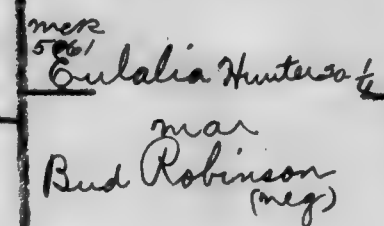 mcR
5061
Eulalia Hunter 20 1/4
mar
Bud Robinson
(neg)